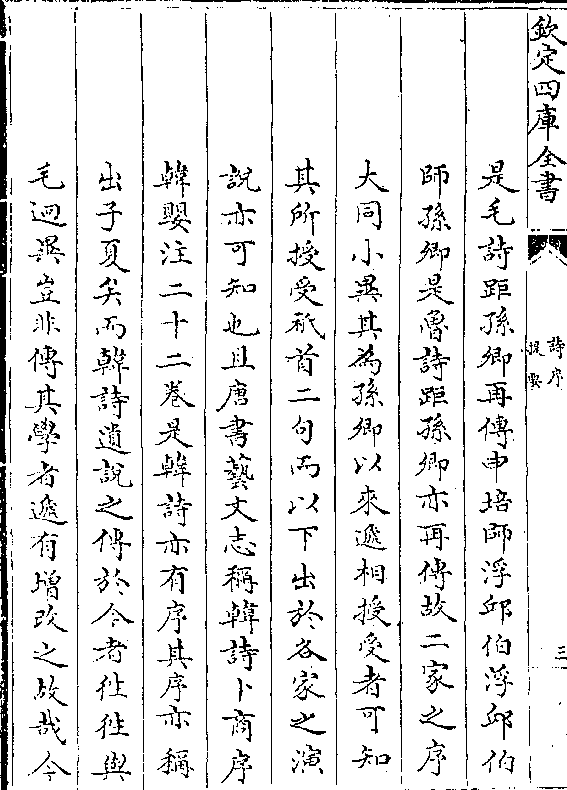 欽定四庫全書
詩序
提要
三
是毛詩距孫卿再傳申培師浮邱伯浮邱伯
師孫卿是魯詩距孫卿亦再傳故二家之序
大同小異其為孫卿以來遞相授受者可知
其所授受祇首二句而以下出於各家之演
說亦可知也且唐書藝文志稱韓詩卜商序
韓嬰注二十二卷是韓詩亦有序其序亦稱
出子夏矣而韓詩遺說之傳於今者徃徃與
毛迥異豈非傳其學者遞有增改之故哉今